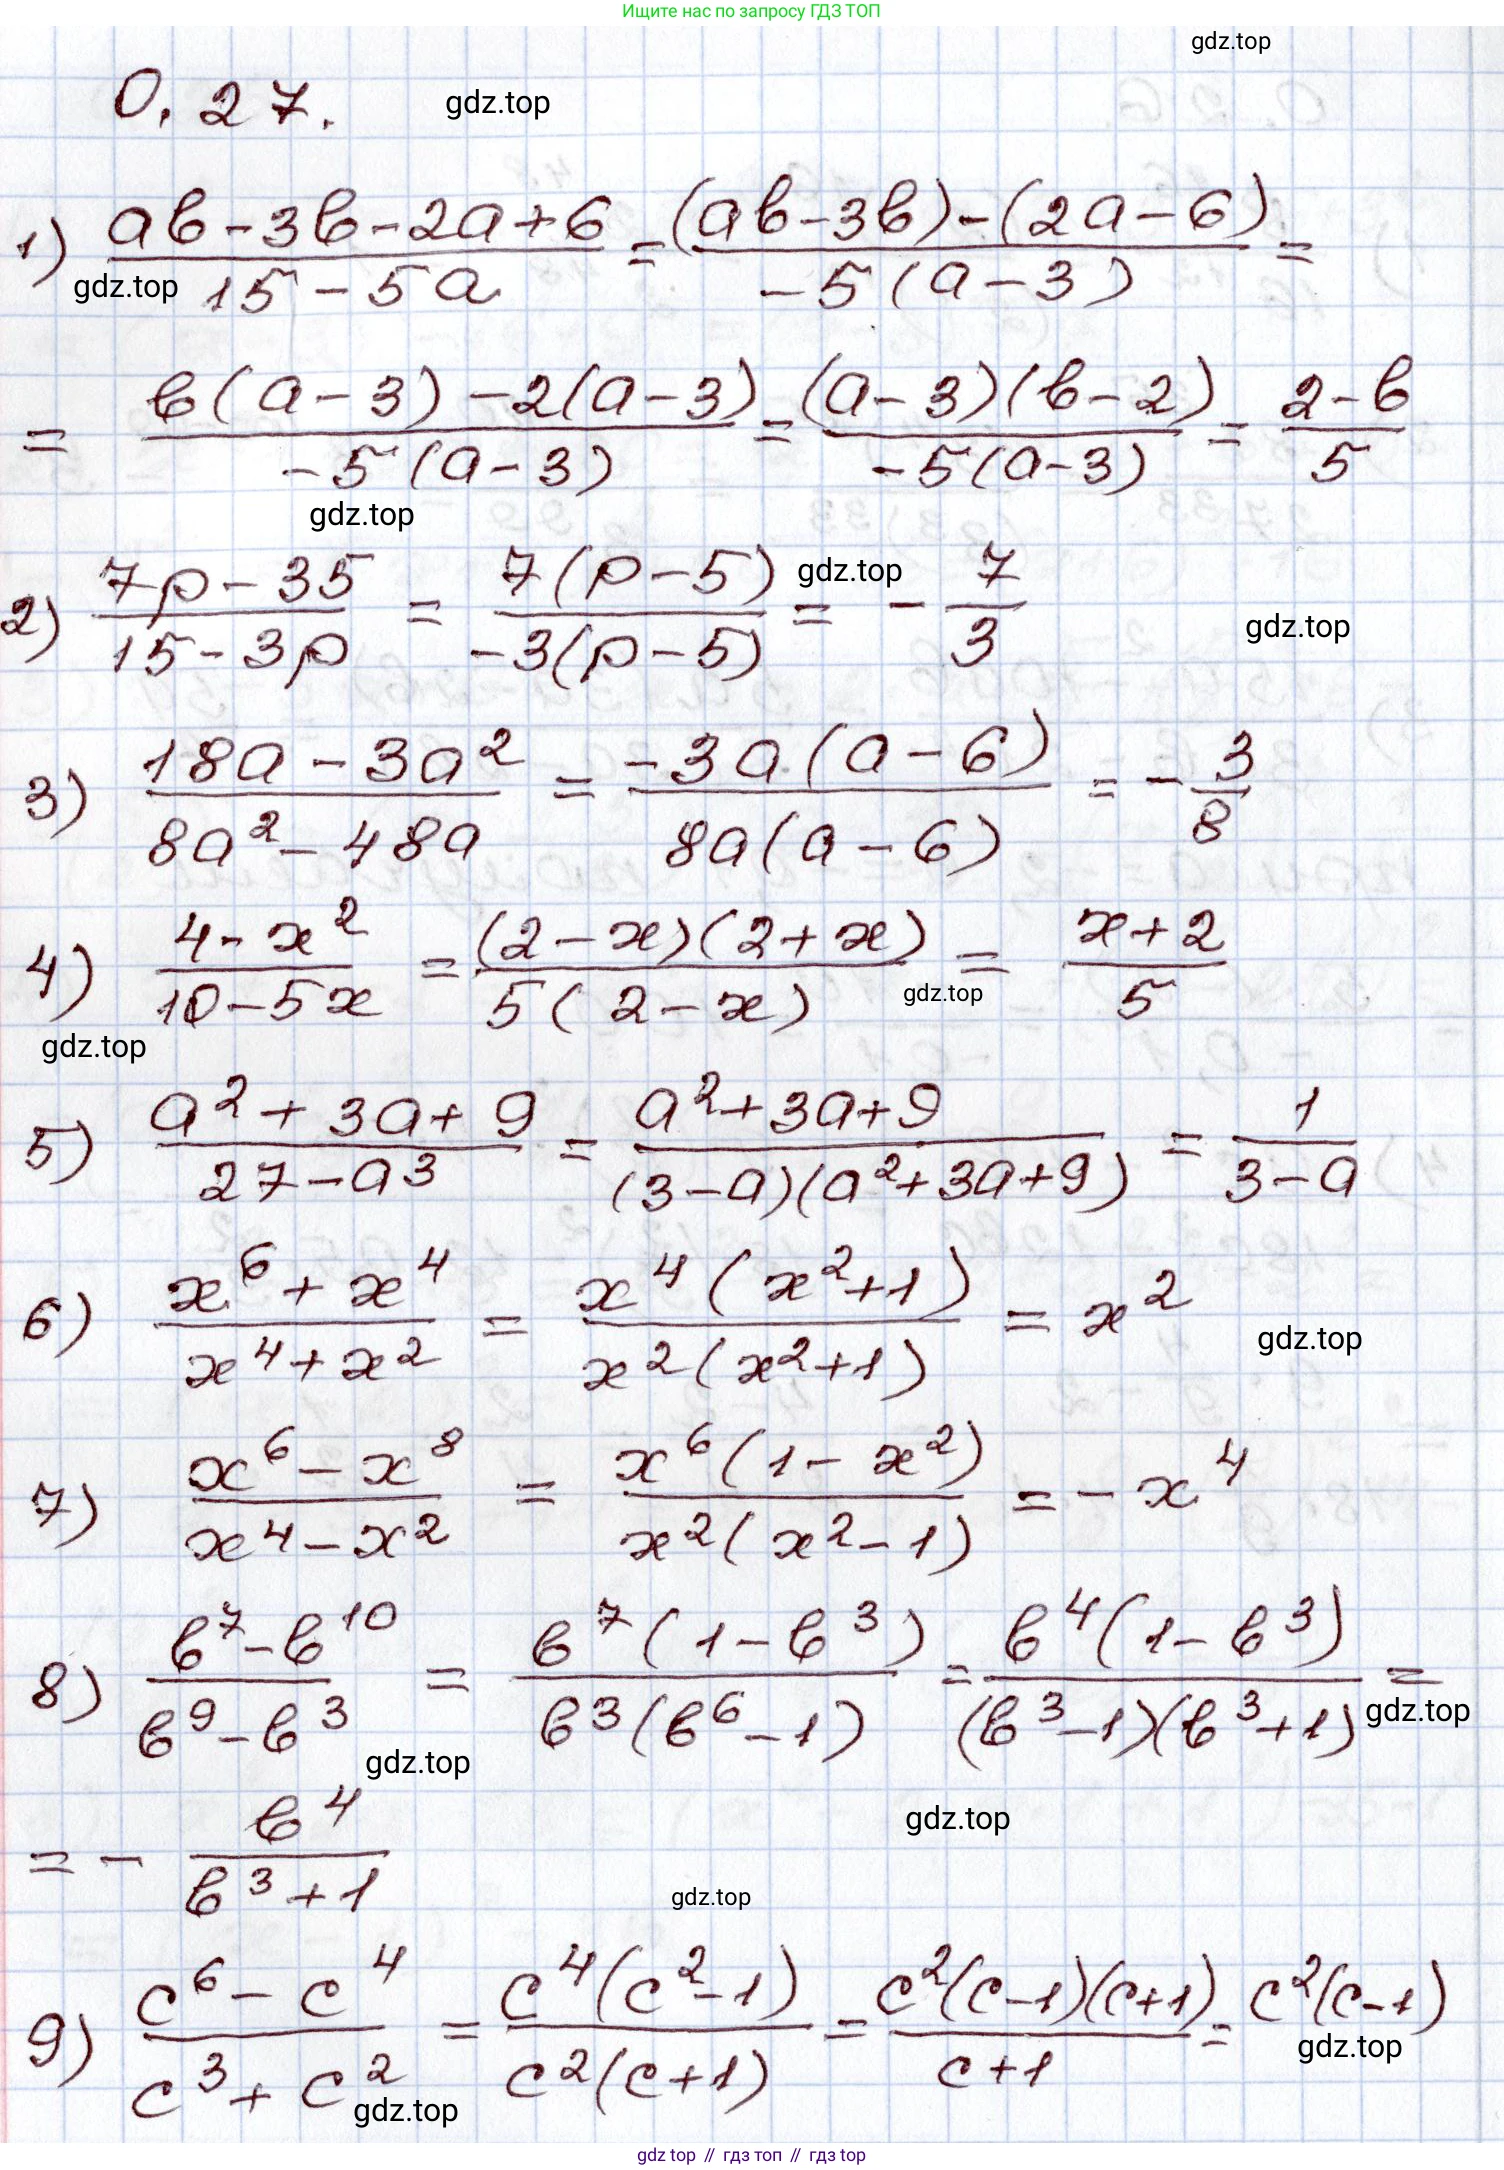 Ищите нас по запросу ГДЗ ТОП
gdz.top
0.27.
gdz.top
1) (ab-3b-2a+6)/(15-5a) = ((ab-3b)-(2a-6))/(-5(a-3)) =
gdz.top
= (b(a-3)-2(a-3))/(-5(a-3)) = ((a-3)(b-2))/(-5(a-3)) = (2-b)/5
gdz.top
2) (7p-35)/(15-3p) = (7(p-5))/(-3(p-5)) = -7/3
gdz.top
gdz.top
3) (18a-3a²)/(8a²-48a) = (-3a(a-6))/(8a(a-6)) = -3/8
4) (4-x²)/(10-5x) = ((2-x)(2+x))/(5(2-x)) = (x+2)/5
gdz.top
gdz.top
5) (a²+3a+9)/(27-a³) = (a²+3a+9)/((3-a)(a²+3a+9)) = 1/(3-a)
6) (x⁶+x⁴)/(x⁴+x²) = (x⁴(x²+1))/(x²(x²+1)) = x²
gdz.top
7) (x⁶-x⁸)/(x⁴-x²) = (x⁶(1-x²))/(x²(x²-1)) = -x⁴
8) (b⁷-b¹⁰)/(b⁹-b³) = (b⁷(1-b³))/(b³(b⁶-1)) = (b⁴(1-b³))/((b³-1)(b³+1)) =
gdz.top
gdz.top
= - b⁴/(b³+1)
gdz.top
gdz.top
9) (c⁶-c⁴)/(c³+c²) = (c⁴(c²-1))/(c²(c+1)) = (c²(c-1)(c+1))/(c+1) = c²(c-1)
gdz.top
gdz.top
gdz top // гдз топ // гдз top